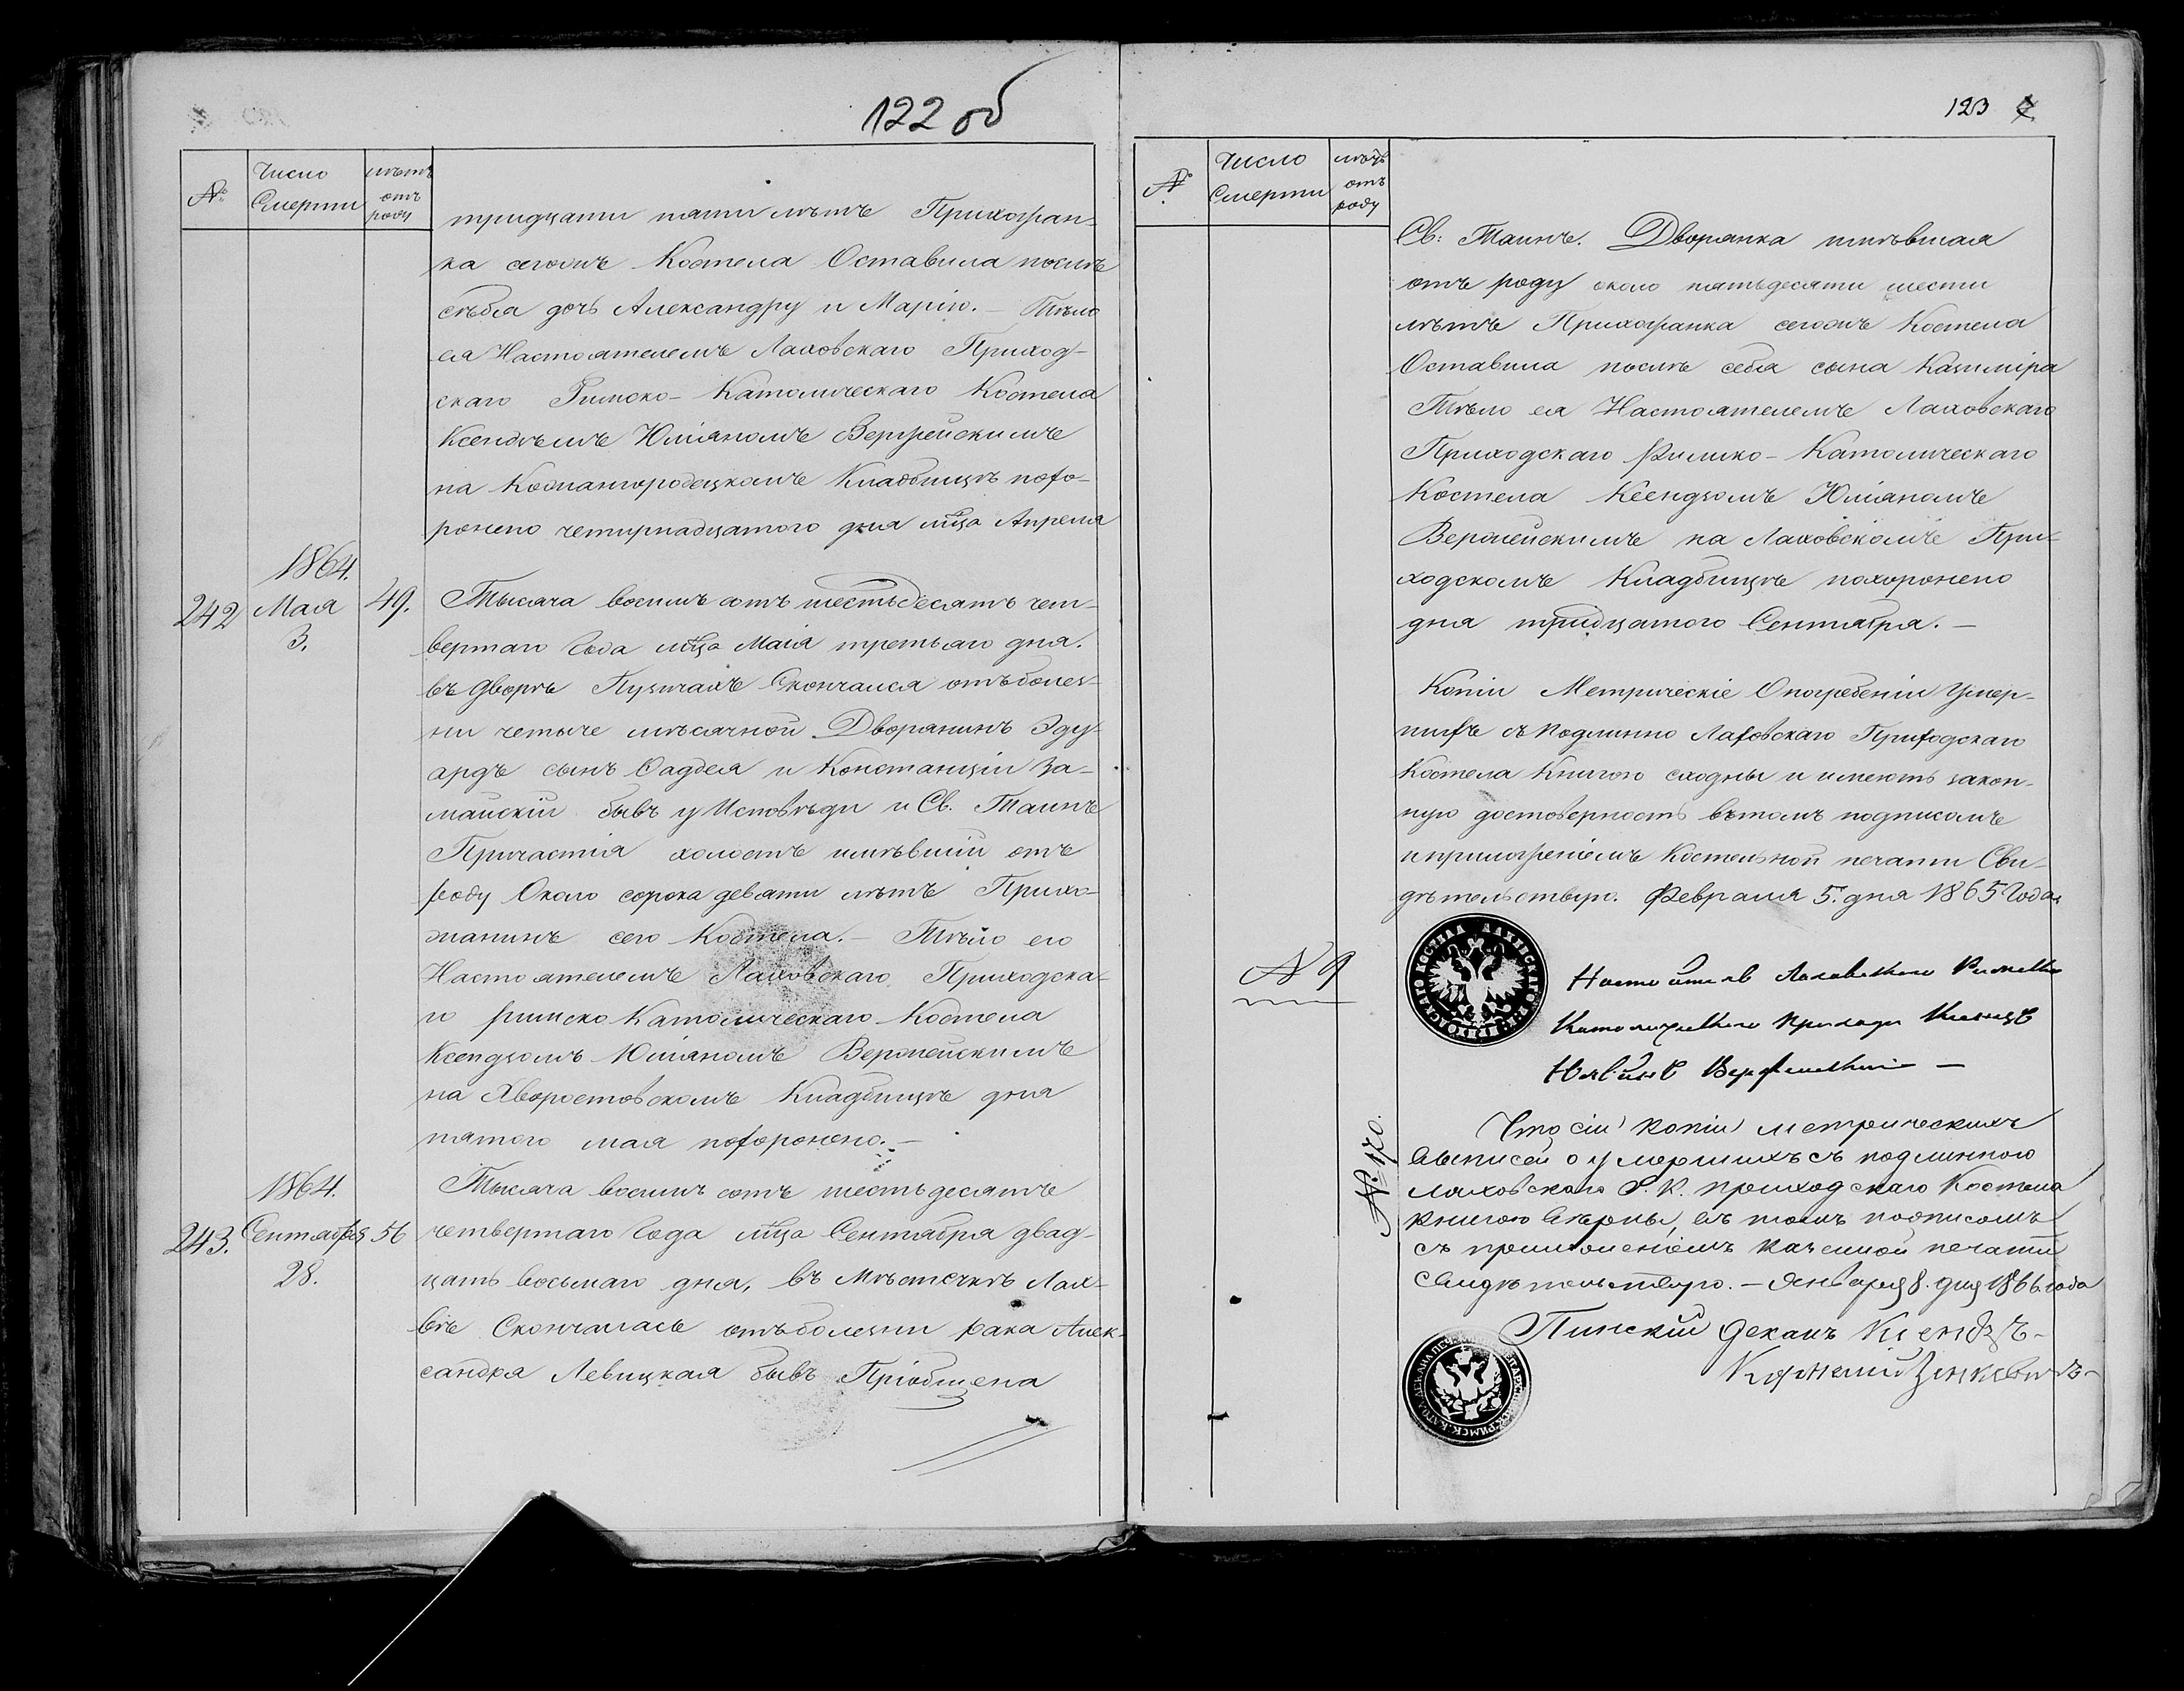 122 об
№
Число
Смерти
лѣтъ
отъ
роду
тридцати пяти лѣтъ Прихожан-
ка сегожъ Костела Оставила послѣ
себѣя дочь Александру и Марію. — Тѣло
ея Настоятелемъ Лаховскаго Приход-
скаго Римско-Католическаго Костела
Ксендзѣмъ Юліяномъ Вержейскимъ
на Кожангородецкомъ Кладбищѣ похо-
ронено четирнадцатого дня мца Апреля
1864.
242 Мая 49.
3.
Тысяча восимь сотъ шестьдесятъ чет-
вертаго Года мца Маія третьяго дня.
въ Дворѣ Пузичахъ Скончался отъ болез-
ни четыре мѣсячной Дворянинъ Эду-
ардъ сынъ Фаддея и Констанціи За-
майскій бывъ у Исповѣди и Св. Таинъ
Причастія холостъ имѣвшій отъ
роду Около сорока девяти лѣтъ Прихо-
жанинъ сего Костела. — Тѣло его
Настоятелемъ Лаховскаго Приходска-
го римско Католическаго Костела
Ксендзомъ Юліяномъ Вержейскимъ
на Хворостовскомъ Кладбищѣ дня
пятого мая похоронено. —
1864.
243. Сентября 56
28.
Тысяча восимь сотъ шестьдесятъ
четвертаго Года мца Сентября двад-
цать восьмаго дня, въ Мѣстечкѣ Лах-
вѣ Скончалась отъ болезни рака Алек-
сандра Левицкая бывъ Пріобщена
123
№
Число
Смерти
лѣтъ
отъ
роду
Св: Таинъ. Дворянка имѣвшая
отъ роду около пятьдесяти шести
лѣтъ Прихожанка сегожъ Костела
Оставила послѣ себя сына Казиміра
Тѣло ея Настоятелемъ Лаховскаго
Приходскаго Римско-Католическаго
Костела Ксендзомъ Юліяномъ
Вержейскимъ на Лаховскомъ При-
ходскомъ Кладбищѣ похоронено
дня тридцатого Сентября. —
Копіи Метрическіе О погребеніи Умер-
шихъ съ Подлинно Лаховскаго Приходскаго
Костела Книгою сходны и имеютъ закон-
ную достоверность вътомъ подписомъ
и приложеніемъ Костельной печати Сви-
дѣтельствую. Февраля 5. дня 1865 Года
№ 9
Настоятель Лаховскаго Римско
Католическаго Прихода Ксендзъ
Юліанъ Вержейскій —
№ 170.
Что сіи копіи метрическихъ
выписей о умершихъ съ подлинною
Лаховскаго Р. К. приходскаго Костела
книгою вѣрны, въ томъ подписомъ
съ приложеніемъ казенной печати
свидѣтельствую. — Января 8. дня 1866. года
Пинскій Деканъ Ксендзъ